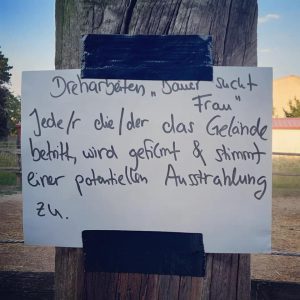 Dreharbeiten „Bauer sucht
Frau"
Jede/r die/der das Gelände
betritt, wird gefilmt & stimmt
einer potentiellen Ausstrahlung
zu.